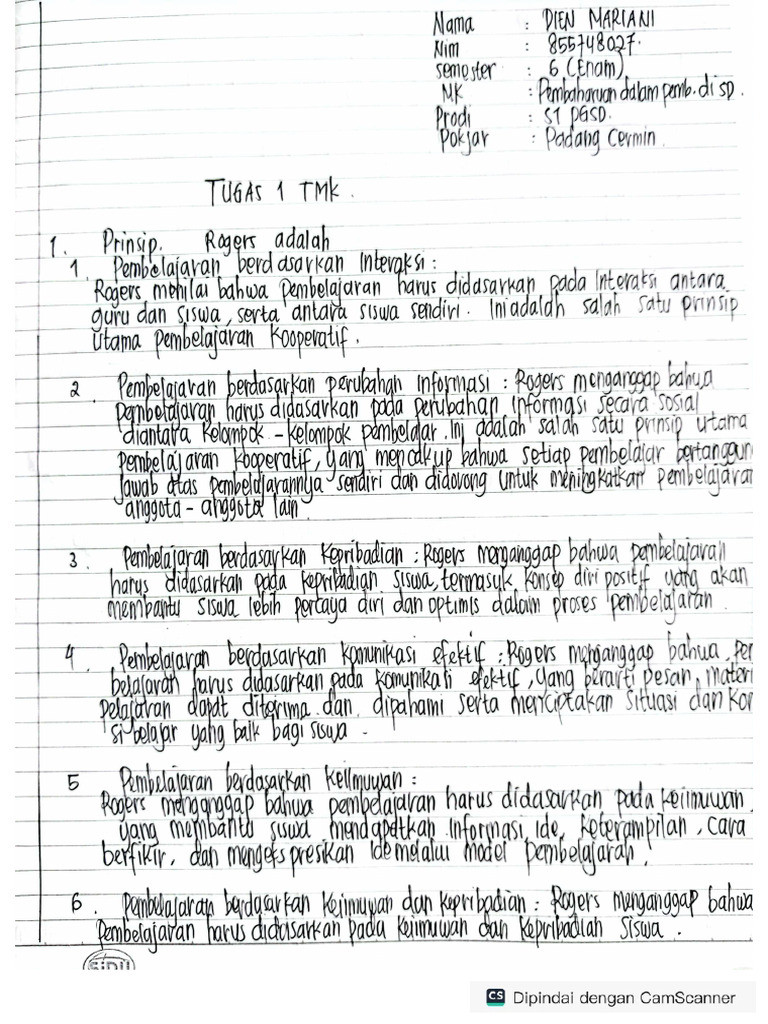 Nama : DIEN MARIANI
Nim : 855748027.
semester : 6 (Enam)
MK : Pembaharuan dalam pemb. di SD.
Prodi : S1 PGSD.
Pokjar : Padang Cermin
TUGAS 1 TMK.
1. Prinsip. Rogers adalah
1. Pembelajaran berdasarkan Interaksi :
Rogers menilai bahwa pembelajaran harus didasarkan pada Interaksi antara
guru dan siswa, serta antara siswa sendiri. Ini adalah salah satu prinsip
Utama pembelajaran Kooperatif.
2 Pembelajaran berdasarkan perubahan Informasi : Rogers menganggap bahwa
pembelajaran harus didasarkan pada perubahan Informasi secara sosial
diantara kelompok - kelompok pembelajar. Ini adalah salah satu prinsip utama
pembelajaran kooperatif, yang mencakup bahwa setiap pembelajar bertanggun
jawab atas pembelajarannya sendiri dan didorong untuk meningkatkan pembelajaran
anggota - anggota lain
3. Pembelajaran berdasarkan Kepribadian : Rogers menganggap bahwa pembelajaran
harus didasarkan pada kepribadian siswa, termasuk konsep diri positif yang akan
membantu siswa lebih percaya diri dan optimis dalam proses pembelajaran
4 Pembelajaran berdasarkan komunikasi efektif : Rogers menganggap bahwa Pem
belajaran harus didasarkan pada komunikasi efektif, yang berarti pesan, materi
pelajaran dapat diterima dan dipahami serta menciptakan situasi dan kon
si belajar yang baik bagi siswa.
5 Pembelajaran berdasarkan keilmuwan :
Rogers menganggap bahwa pembelajaran harus didasarkan pada keilmuwan,
yang membantu siswa mendapatkan Informasi, Ide, keterampilan, cara
berfikir, dan mengekspresikan Ide melalui model pembelajaran.
6. Pembelajaran berdasarkan Keilmuwan dan kepribadian : Rogers menganggap bahwa
Pembelajaran harus didasarkan pada keilmuwan dan kepribadian siswa.
SIDU
CS Dipindai dengan CamScanner